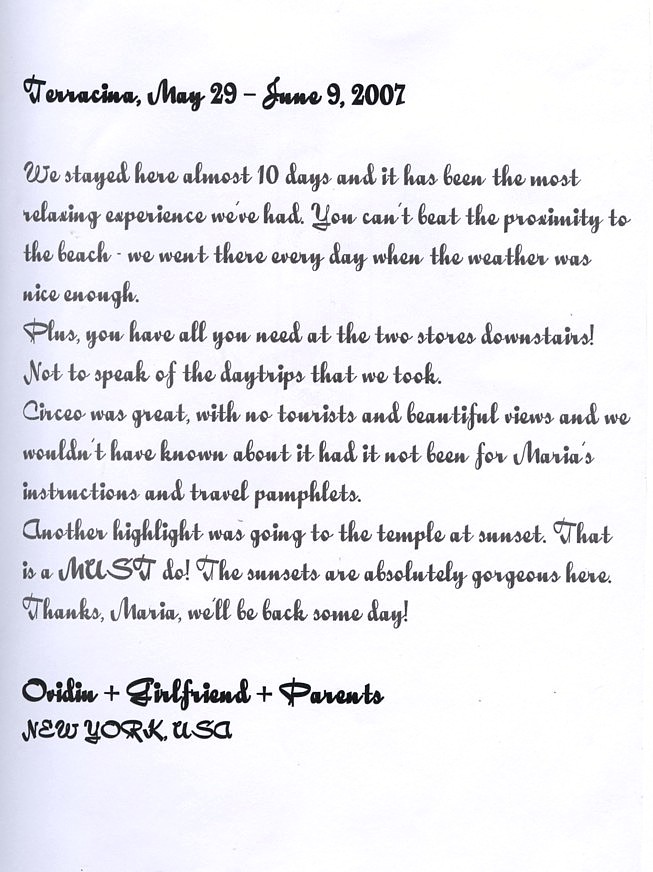 Terracina, May 29 – June 9, 2007
We stayed here almost 10 days and it has been the most
relaxing experience we've had. You can't beat the proximity to
the beach - we went there every day when the weather was
nice enough.
Plus, you have all you need at the two stores downstairs!
Not to speak of the daytrips that we took.
Circeo was great, with no tourists and beautiful views and we
wouldn't have known about it had it not been for Maria's
instructions and travel pamphlets.
Another highlight was going to the temple at sunset. That
is a MUST do! The sunsets are absolutely gorgeous here.
Thanks, Maria, we'll be back some day!
Ovidiu + Girlfriend + Parents
NEW YORK, USA